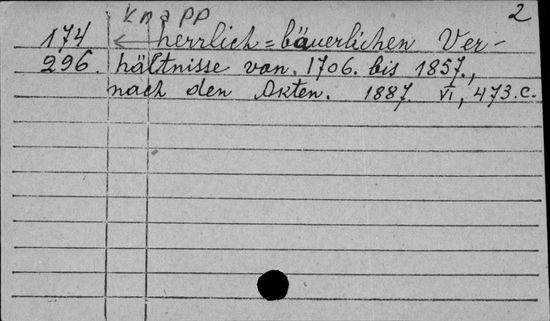 Knapp 2
174 herrlich=bäuerlichen Ver-
296. hältnisse von. 1706. bis 1857.,
nach den Akten. 1887. VI, 473.C.